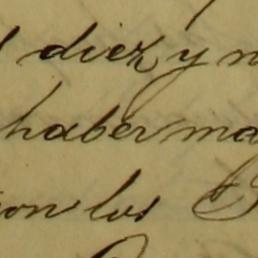 diez y n
haber ma
ron los